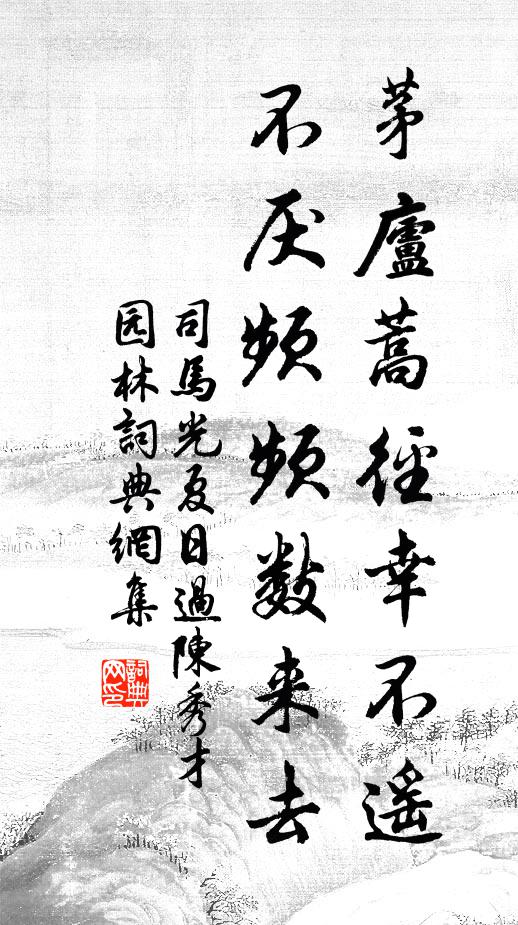 茅廬蒿徑幸不遥
不厌頻頻数来去
司馬光夏日過陳秀才
园林詞典網集
詞典
网印